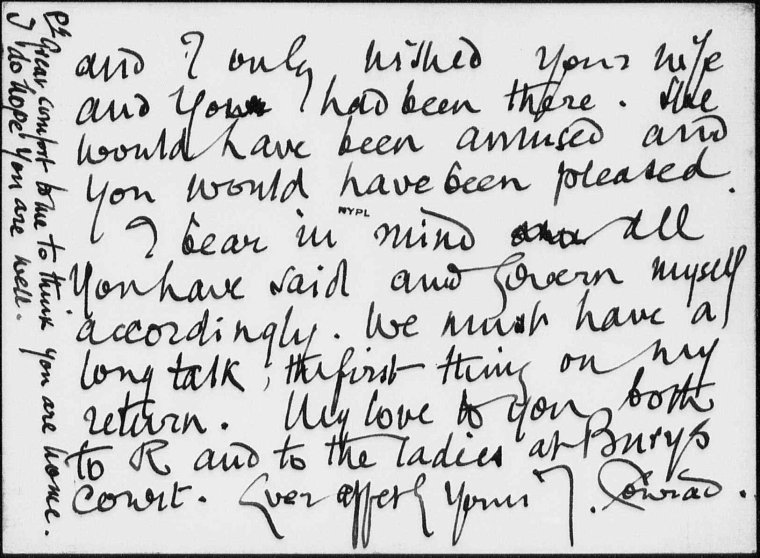 and I only wished your wife
and you had been there. She
would have been amused and
you would have been pleased.
NYPL
I bear in mind all
you have said and govern myself
accordingly. We must have a
long talk, the first thing on my
return. My love to you both
to R and to the ladies at Burys
Court. Ever affetly Yours J. Conrad.
Great comfort to me to think you are home.
I do hope you are well.